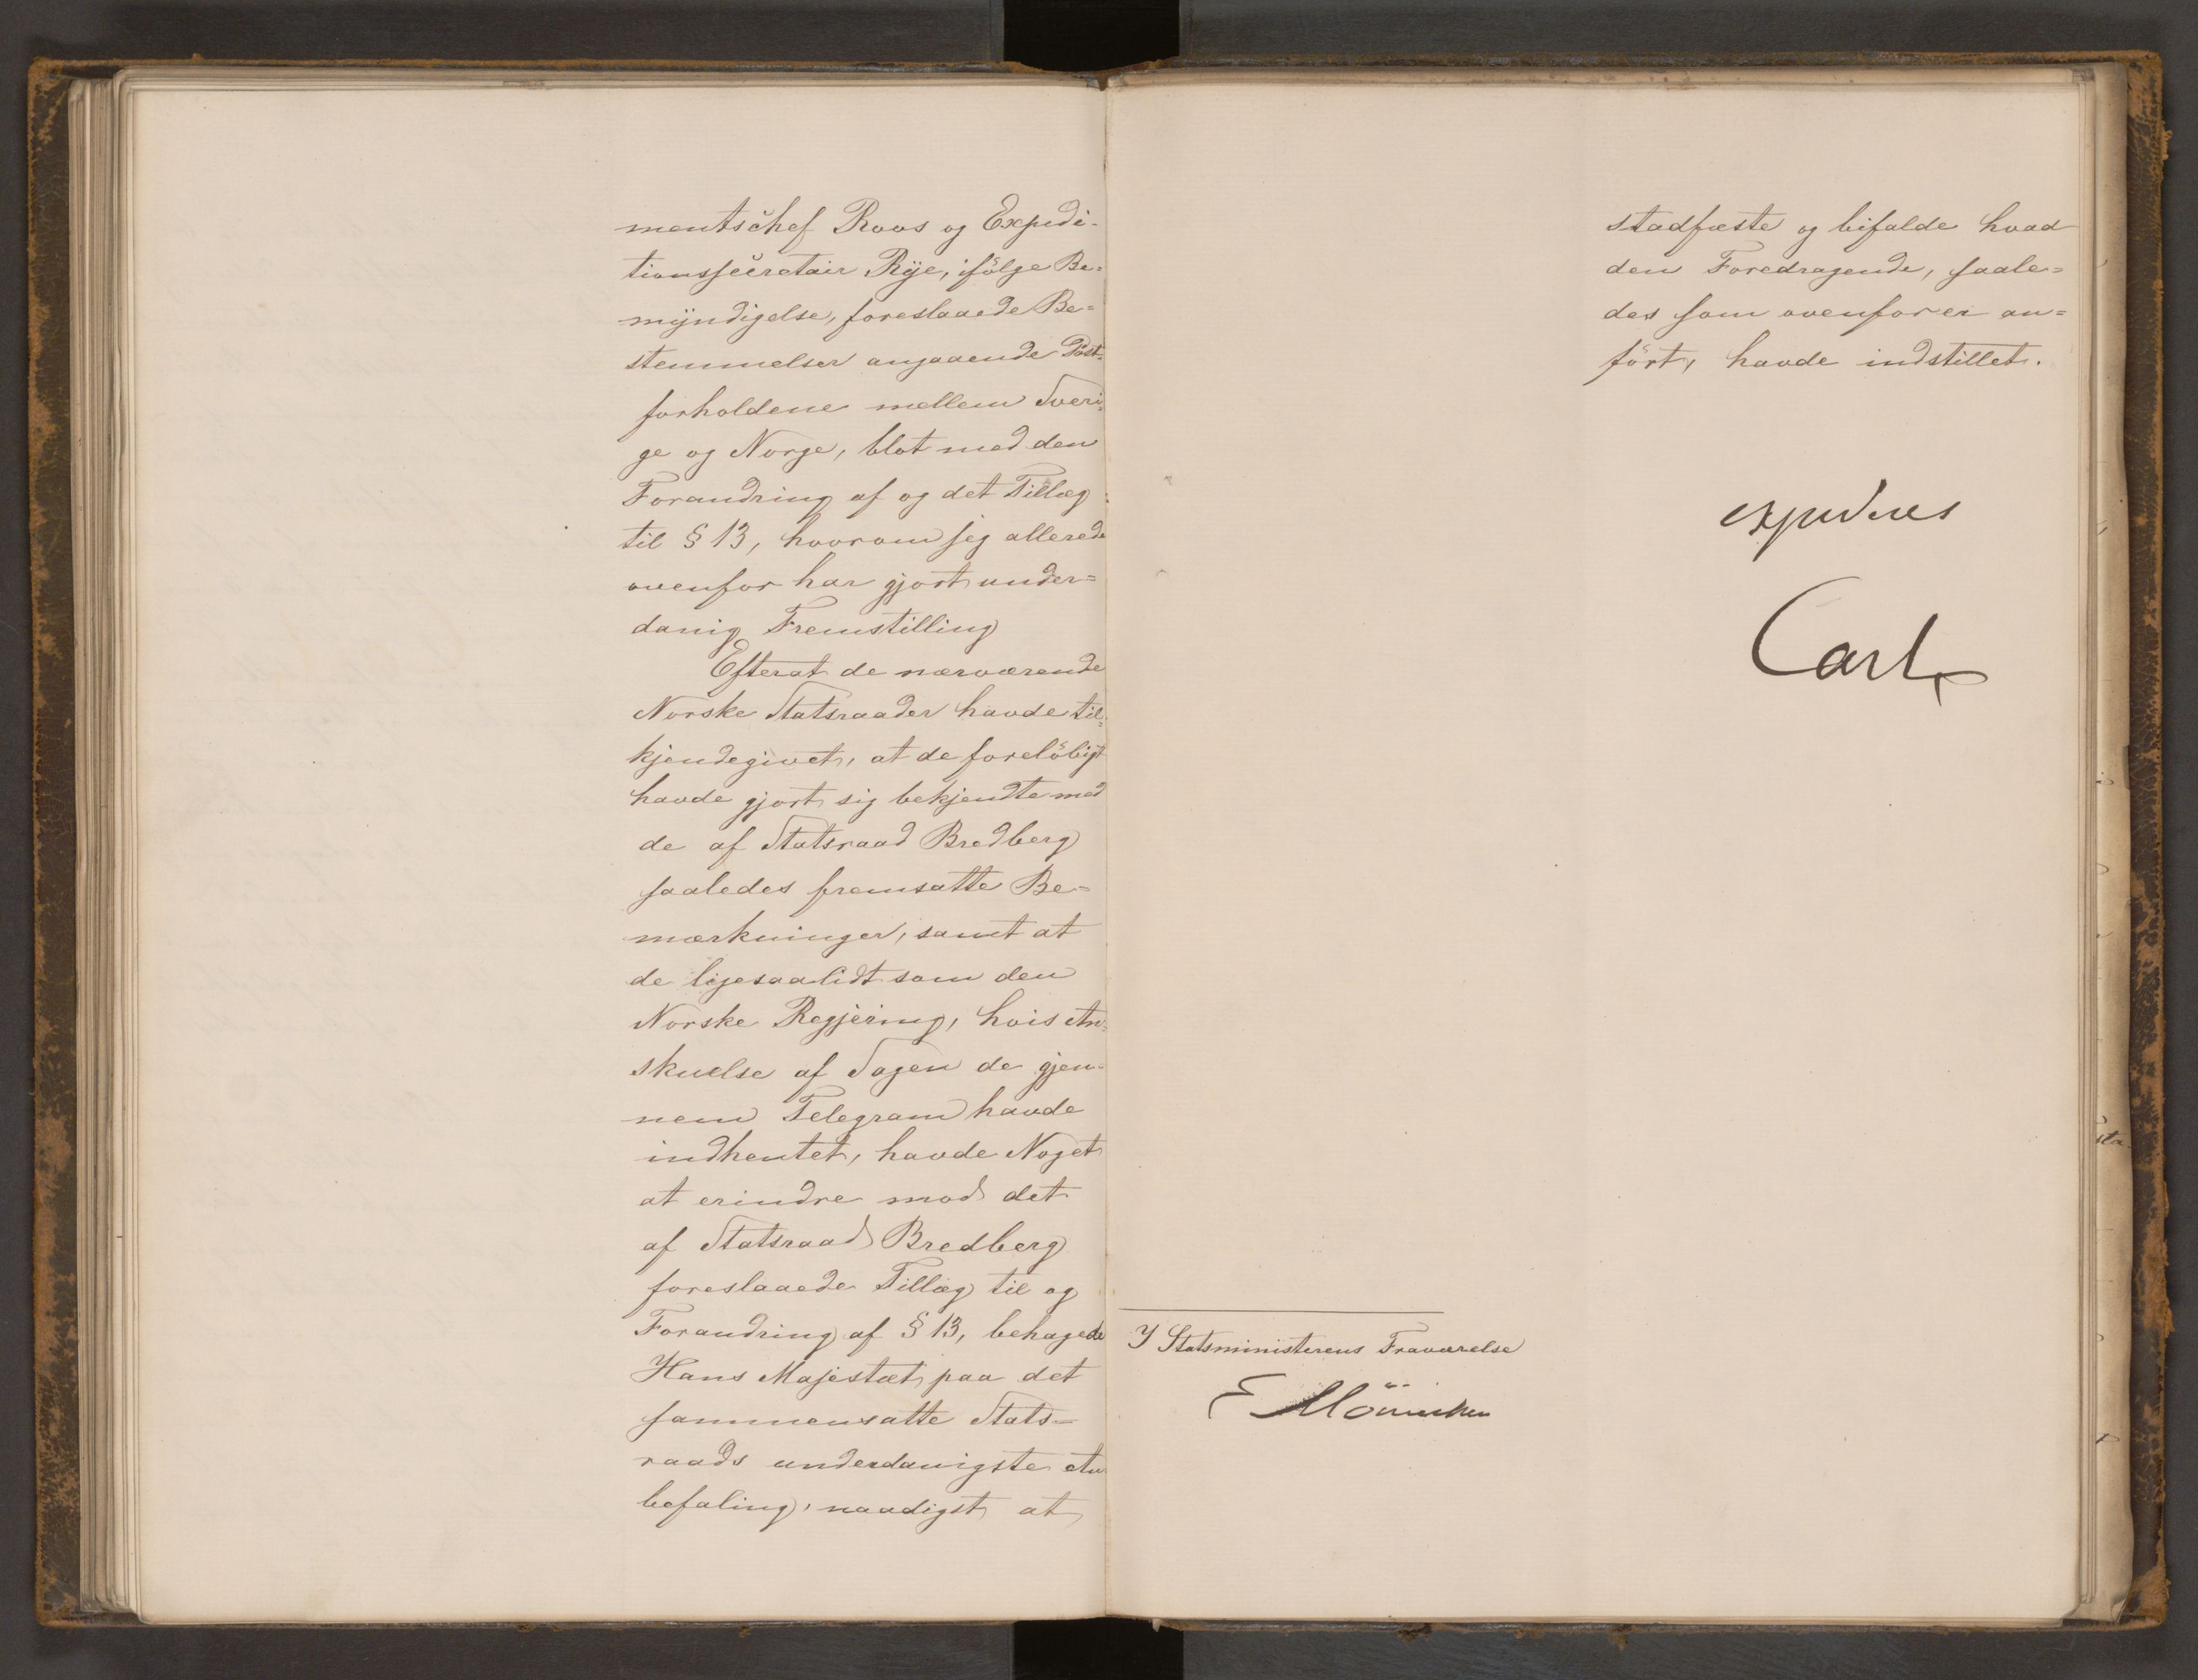 mentschef Roos og Expedi-
tionssecretair Rye, ifölge Be-
myndigelse, foreslaaede Be-
stemmelser angaaende Post-
forholdene mellem Sveri-
ge og Norge, blot med den
Forandring af og det Tillæg
til § 13, hvorom jeg allerede
ovenfor har gjort under-
danig Fremstilling
Efterat de nærværende
Norske Statsraader havde til-
kjendegivet, at de forelöbigt
havde gjort sig bekjendte med
de af Statsraad Bredberg
saaledes fremsatte Be-
mærkninger, samt at
de ligesaalidt som den
Norske Regjering, hvis An-
skuelse af Sagen de gjen-
nem Telegram havde
indhentet, havde Noget
at erindre mod det
af Statsraad Bredberg
foreslaaede Tillæg til og
Forandring af § 13, behagede
Hans Majestæt paa det
sammensatte Stats-
raads underdanigste An-
befaling, naadigst at
stadfæste og bifalde hvad
den Foredragende, saale-
des som ovenfor er an-
fört, havde indstillet.
expederes
Carl
I Statsministerens Fraværelse
E Mönnichen